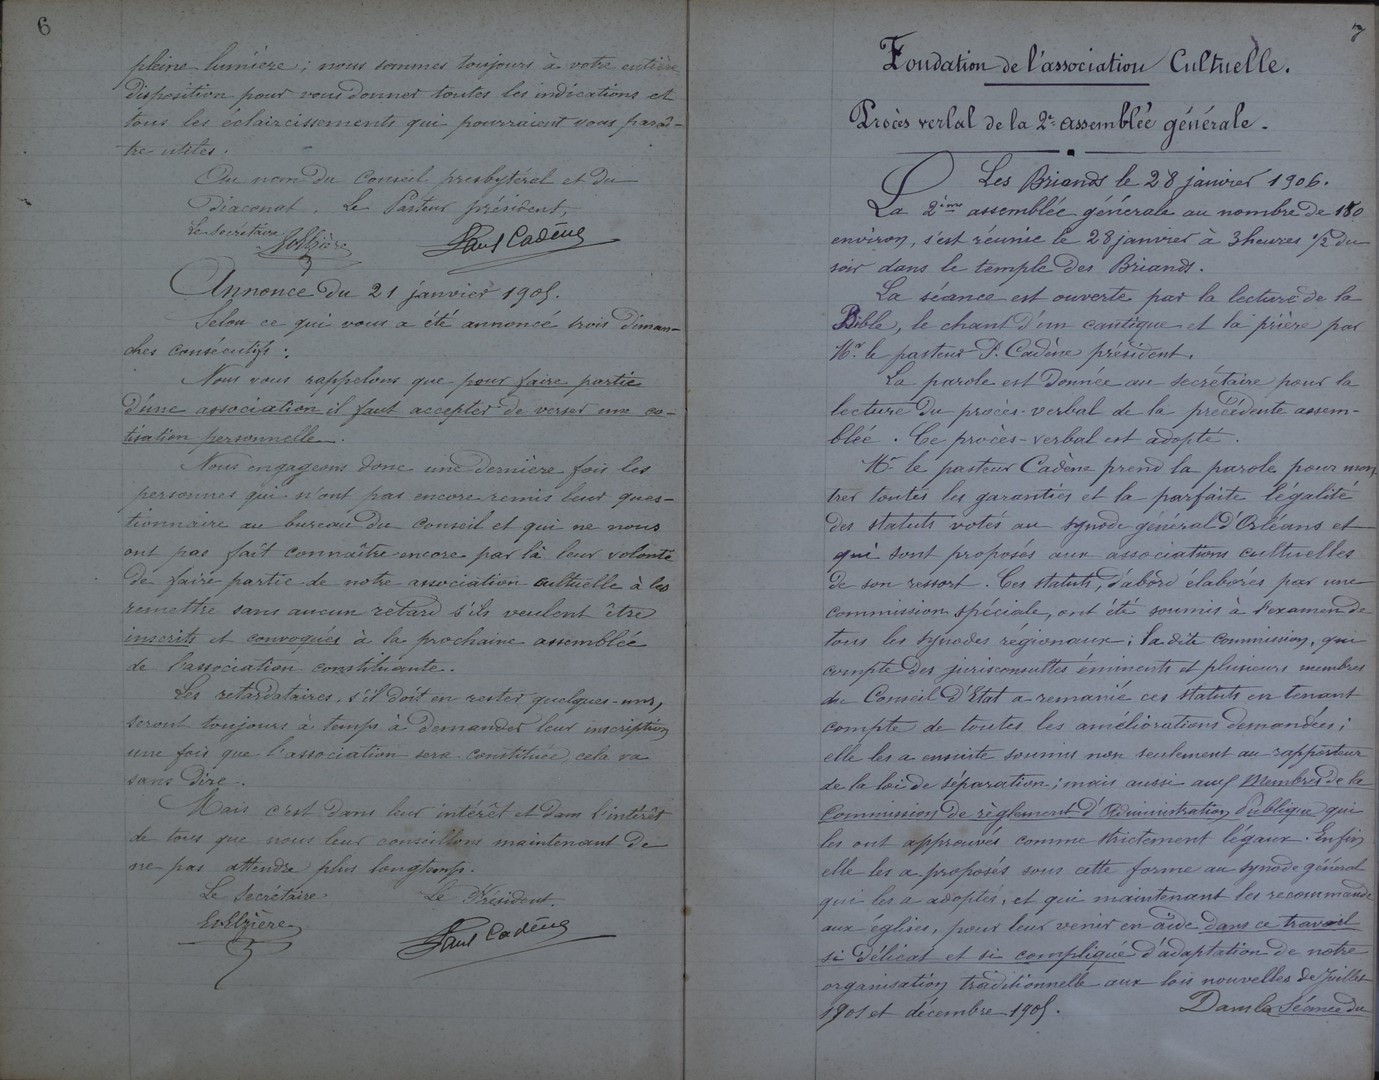 6
pleine lumière ; nous sommes toujours à votre entière
disposition pour vous donner toutes les indications et
tous les éclaircissements qui pourraient vous paraî-
tre utiles.
Au nom du Conseil presbytéral et du
Diaconat. Le Pasteur président,
Le Secrétaire
Paul Cadène
Annonce du 21 janvier 1905.
Selon ce qui vous a été annoncé trois diman-
ches consécutifs :
Nous vous rappelons que pour faire partie
d'une association il faut accepter de verser une co-
tisation personnelle.
Nous engageons donc une dernière fois les
personnes qui n'ont pas encore remis leur ques-
tionnaire au bureau du Conseil et qui ne nous
ont pas fait connaître encore par là leur volonté
de faire partie de notre association cultuelle à les
remettre sans aucun retard s'ils veulent être
inscrits et convoqués à la prochaine assemblée
de l'association constituante.
Les retardataires, s'il doit en rester quelques-uns,
seront toujours à temps à demander leur inscription
une fois que l'association sera constituée, cela va
sans dire.
Mais c'est dans leur intérêt et dans l'intérêt
de tous que nous leur conseillons maintenant de
ne pas attendre plus longtemps.
Le Secrétaire Le Président.
Paul Cadène
7
Fondation de l'association Cultuelle.
Procès verbal de la 2e assemblée générale.
Les Briands le 28 janvier 1906.
La 2ème assemblée générale au nombre de 150
environ, s'est réunie le 28 janvier à 3 heures 1/2 du
soir dans le temple des Briands.
La séance est ouverte par la lecture de la
Bible, le chant d'un cantique et la prière par
Mr le pasteur P. Cadène président.
La parole est donnée au secrétaire pour la
lecture du procès-verbal de la précédente assem-
blée. Ce procès-verbal est adopté.
Mr le pasteur Cadène prend la parole pour mon-
trer toutes les garanties et la parfaite légalité
des statuts votés au synode général d'Orléans et
qui sont proposés aux associations cultuelles
de son ressort. Ces statuts, d'abord élaborés par une
commission spéciale, ont été soumis à l'examen de
tous les synodes régionaux ; la dite commission, qui
compte des jurisconsultes éminents et plusieurs membres
du Conseil d'Etat a remanié ces statuts en tenant
compte de toutes les améliorations demandées ;
elle les a ensuite soumis non seulement au rapporteur
de la loi de séparation ; mais aussi aux Membres de la
Commission de règlement d'Administration Publique qui
les ont approuvés comme strictement légaux. Enfin
elle les a proposés sous cette forme au synode général
qui les a adoptés, et qui maintenant les recommande
aux églises, pour leur venir en aide dans ce travail
si délicat et si compliqué d'adaptation de notre
organisation traditionnelle aux lois nouvelles de Juillet
1901 et décembre 1905. Dans la Séance du